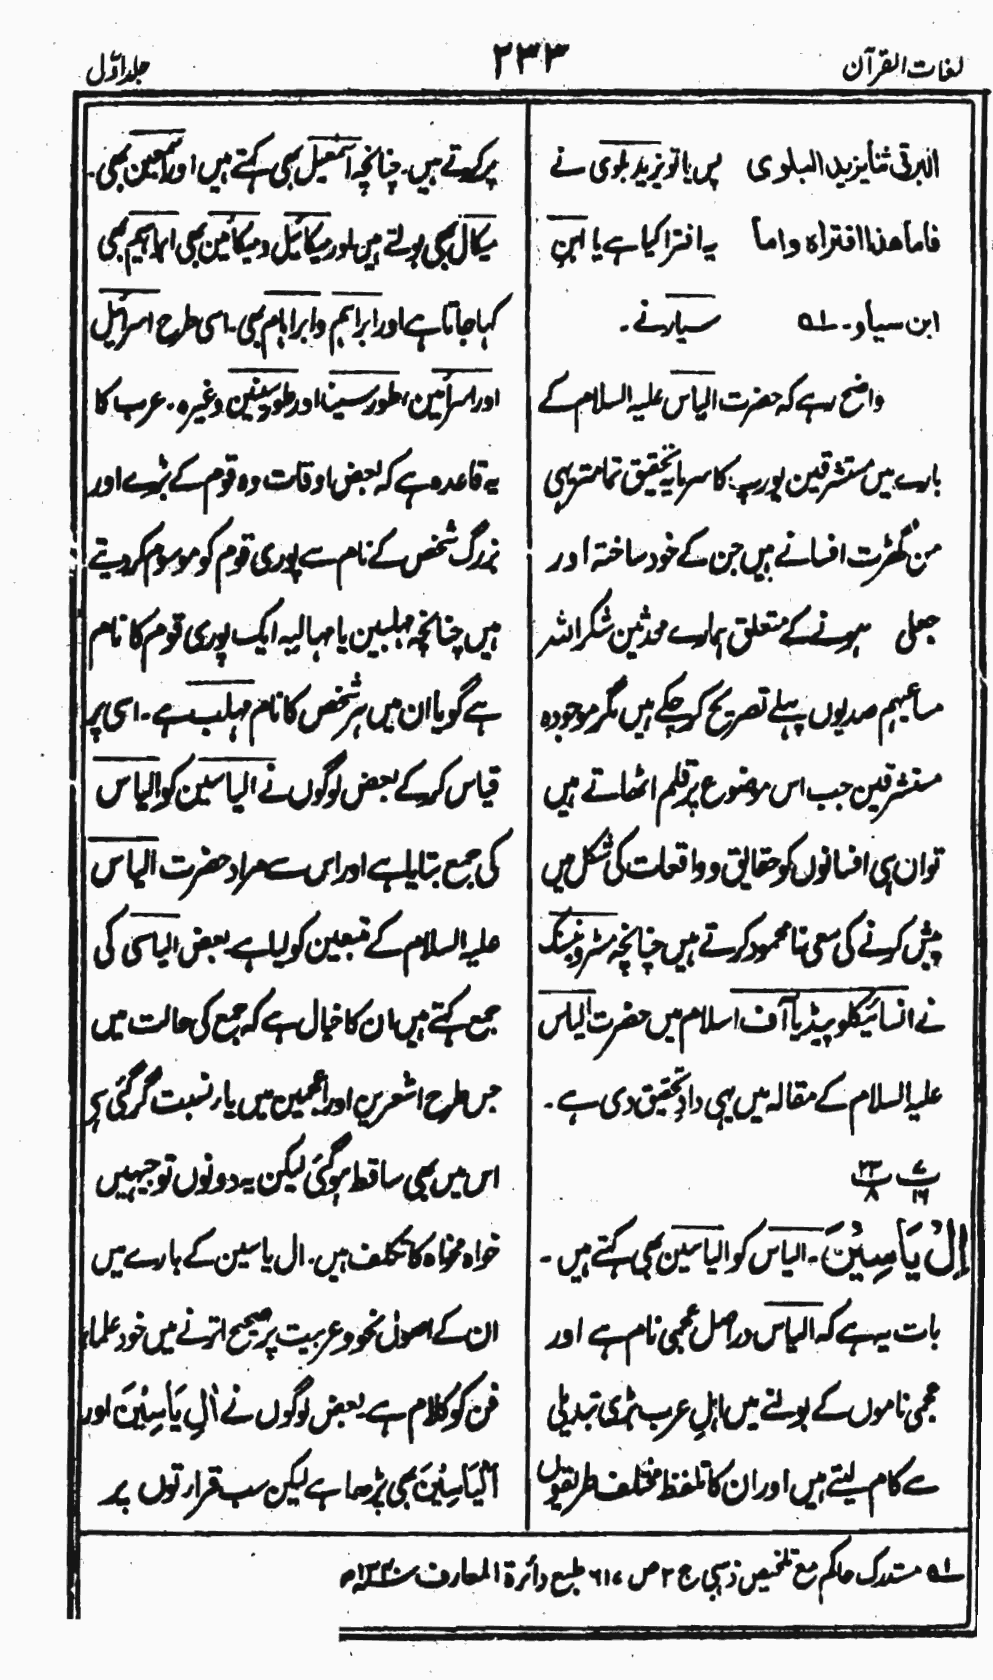 لغات القرآن
۲۳۳
جلد اوّل
البرقی ثنا یزید البلوی پس یا تو یزید بلوی نے
فاما هذا افتراه واما یہ افترا کیا ہے یا ابن
ابن سیار۔ ؎۱ سیار نے ۔
واضح رہے کہ حضرت الیاس علیہ السلام کے
بارے میں مستشرقین یورپ کا سرمایۂ تحقیق تمامتر یہی
من گھڑت افسانے ہیں جن کے خود ساختہ اور
جعلی ہونے کے متعلق ہمارے محدثین شکر اللہ
مساعیہم صدیوں پہلے تصریح کر چکے ہیں مگر موجودہ
مستشرقین جب اس موضوع پر قلم اٹھاتے ہیں
تو ان ہی افسانوں کو حقایق و واقعات کی شکل میں
پیش کرنے کی سعی نامحمود کرتے ہیں چنانچہ مسٹر ونسنک
نے انسائیکلوپیڈیا آف اسلام میں حضرت الیاس
علیہ السلام کے مقالہ میں یہی دادِ تحقیق دی ہے ۔
پ۷ ۱۶ پ۲۳ ۸
اِلْ یَاسِیْنَ ۔ الیاس کو الیاسین بھی کہتے ہیں ۔
بات یہ ہے کہ الیاس در اصل عجمی نام ہے اور
عجمی ناموں کے بولنے میں اہلِ عرب بڑی تبدیلی
سے کام لیتے ہیں اور ان کا تلفظ مختلف طریقوں
پر کرتے ہیں۔ چنانچہ اسمٰعیل بھی کہتے ہیں اور اسمعین بھی۔
میکال بھی بولتے ہیں اور میکائیل و میکائین بھی ابراہیم بھی
کہا جاتا ہے اور ابراہم وابراہام بھی۔ اسی طرح اسرائیل
اور اسرائین، طور سینا اور طور سینین وغیرہ۔ عرب کا
یہ قاعدہ ہے کہ بعض اوقات وہ قوم کے بڑے اور
بزرگ شخص کے نام سے پوری قوم کو موسوم کر دیتے
ہیں چنانچہ مہلبین یا مہالبہ ایک پوری قوم کا نام
ہے گویا ان میں ہر شخص کا نام مہلب ہے۔ اسی پر
قیاس کر کے بعض لوگوں نے الیاسین کو الیاس
کی جمع بتایا ہے اور اس سے مراد حضرت الیاس
علیہ السلام کے متبعین کو لیا ہے بعض الیاسی کی
جمع کہتے ہیں ان کا خیال ہے کہ جمع کی حالت میں
جس طرح اشعرین اور اعجمین میں یار نسبت گر گئی ہے
اس میں بھی ساقط ہو گئی لیکن یہ دونوں توجیہیں
خواہ مخواہ کا تکلف ہیں۔ ال یاسین کے بارے میں
ان کے اصول نحو و عربیت پر صحیح اترنے میں خود علماء
فن کو کلام ہے بعض لوگوں نے اٰلِ یَاْسِیْنَ اور
اَلْیَاسِیْنَ بھی پڑھا ہے لیکن سب قرارتوں پر
؎۱ مستدرک حاکم مع تلخیص ذہبی ج ۲ ص ۶۱۷ طبع دائرۃ المعارف